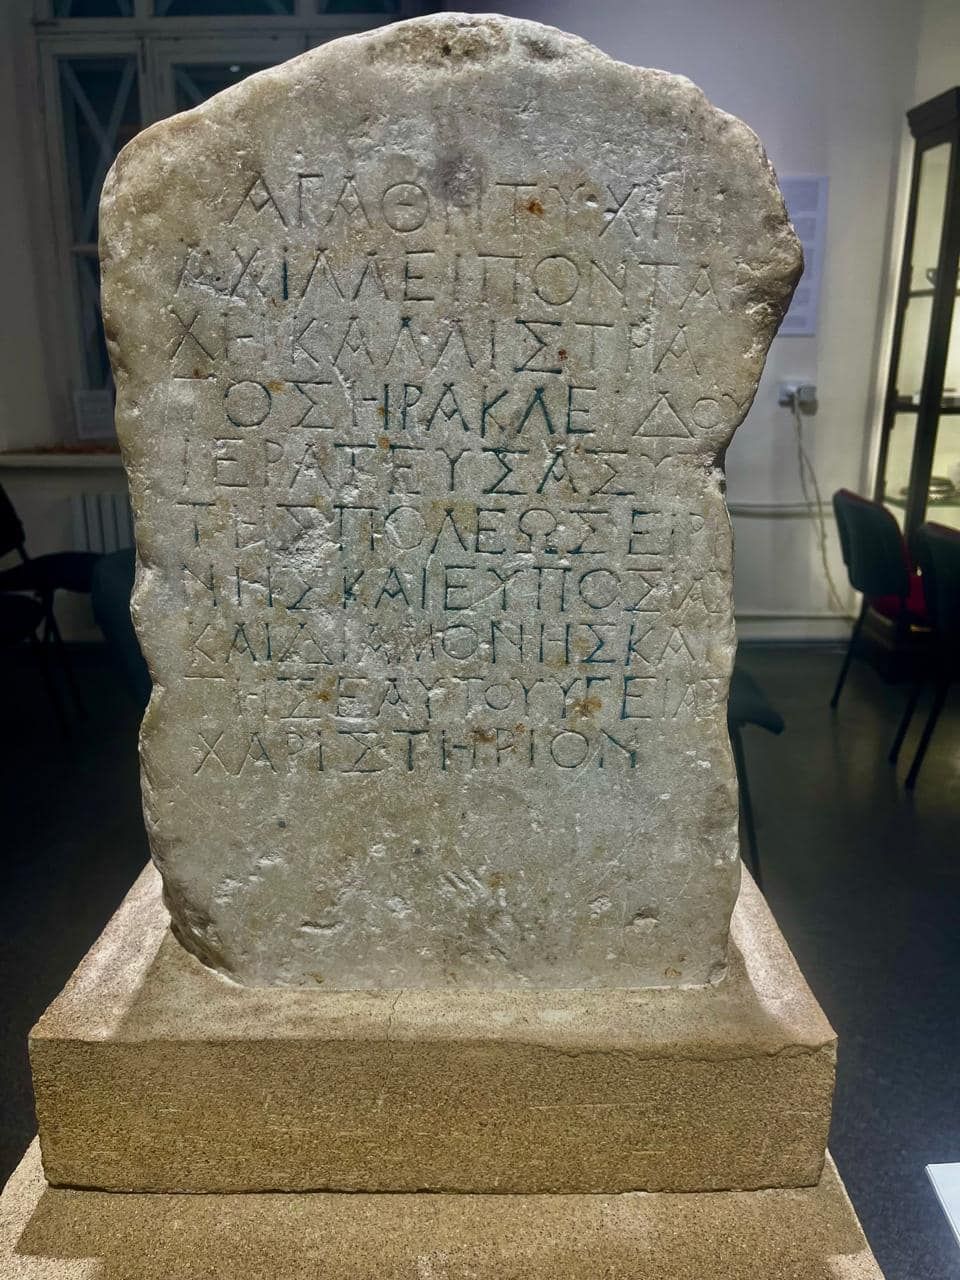 ΑΓΑΘΗ ΤΥΧΗ
ΑΧΙΛΛΕΙ ΠΟΝΤΑ
ΧΕΙ ΚΑΛΛΙΣΤΡΑ
ΤΟΣ ΗΡΑΚΛΕΙΔΟΥ
ΙΕΡΑΤΕΥΣΑΣ ΥΠ
ΤΗΣ ΠΟΛΕΩΣ ΕΙΡ
ΝΗΣ ΚΑΙ ΕΥΠΟΣΙΑΣ
ΚΑΙ ΔΙΑΜΟΝΗΣ ΚΑΙ
ΤΗΣ ΕΑΥΤΟΥ ΥΓΕΙΑΣ
ΧΑΡΙΣΤΗΡΙΟΝ